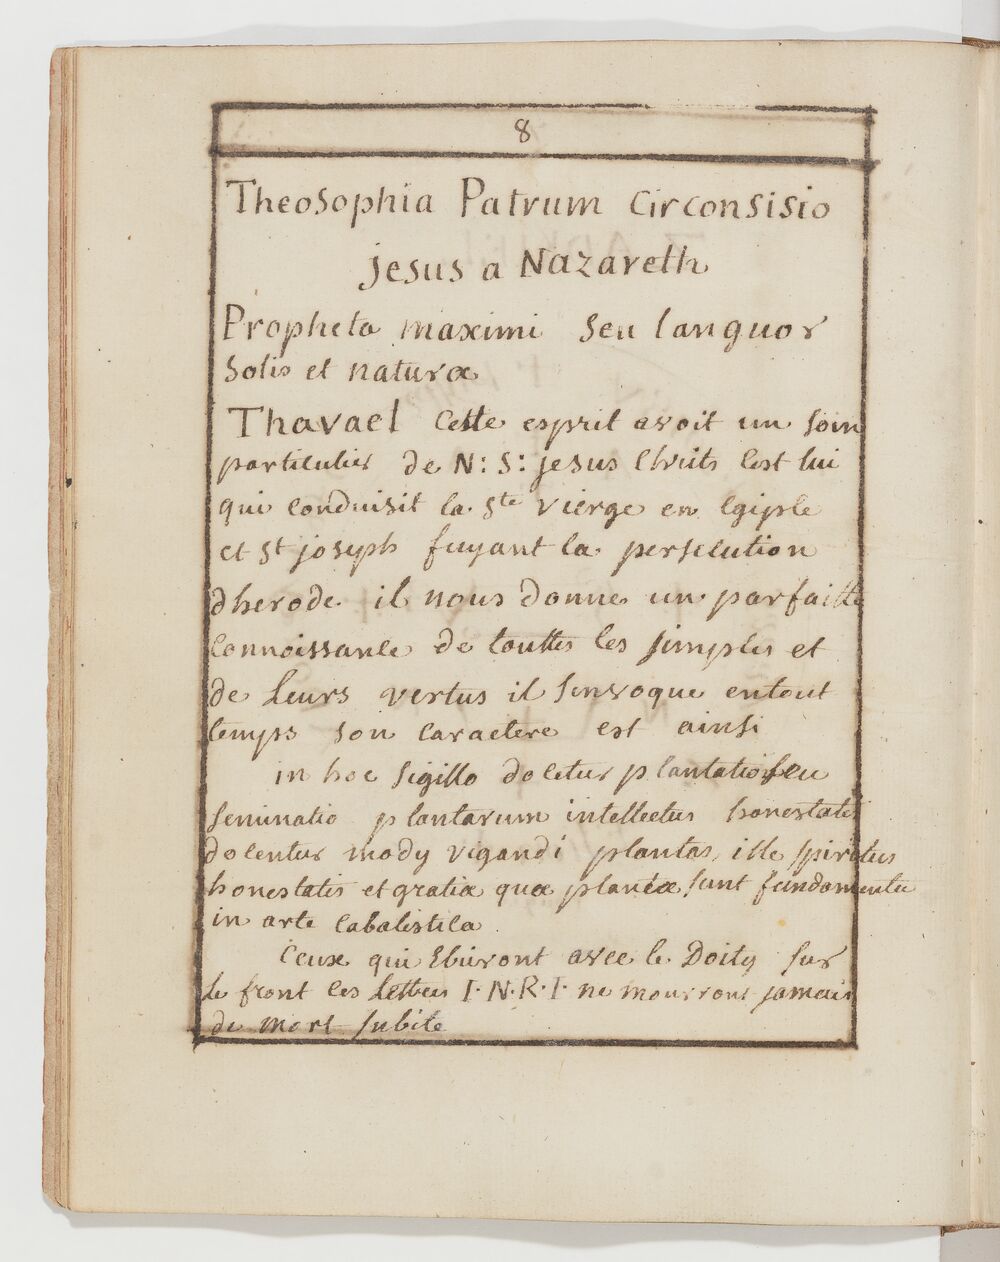 8
Theosophia Patrum Circonsisio
jesus a Nazareth
Propheta maximi seu languor
Solis et naturæ
Thavael Cette esprit avoit un soin
particulier de N: S: jesus Chrits cest lui
qui conduisit la Ste Vierge en Egiple
et St joseph fuyant la persecution
dherode il nous donne un parfaitte
connoissance de touttes les simples et
de Leurs vertus il sinvoque entout
temps son caractere est ainsi
in hoc sigillo docetur plantatio seu
seminatio plantarum intellectus honestatis
docentur mody vigandi plantas, ille spiritus
honestatis et gratiæ quæ planetæ sunt fundamentu
in arte cabalistica.
Ceux qui Ecriront avec le Doity sur
Le front les Lettres I·N·R·I· ne mourront jamais
de mort subite